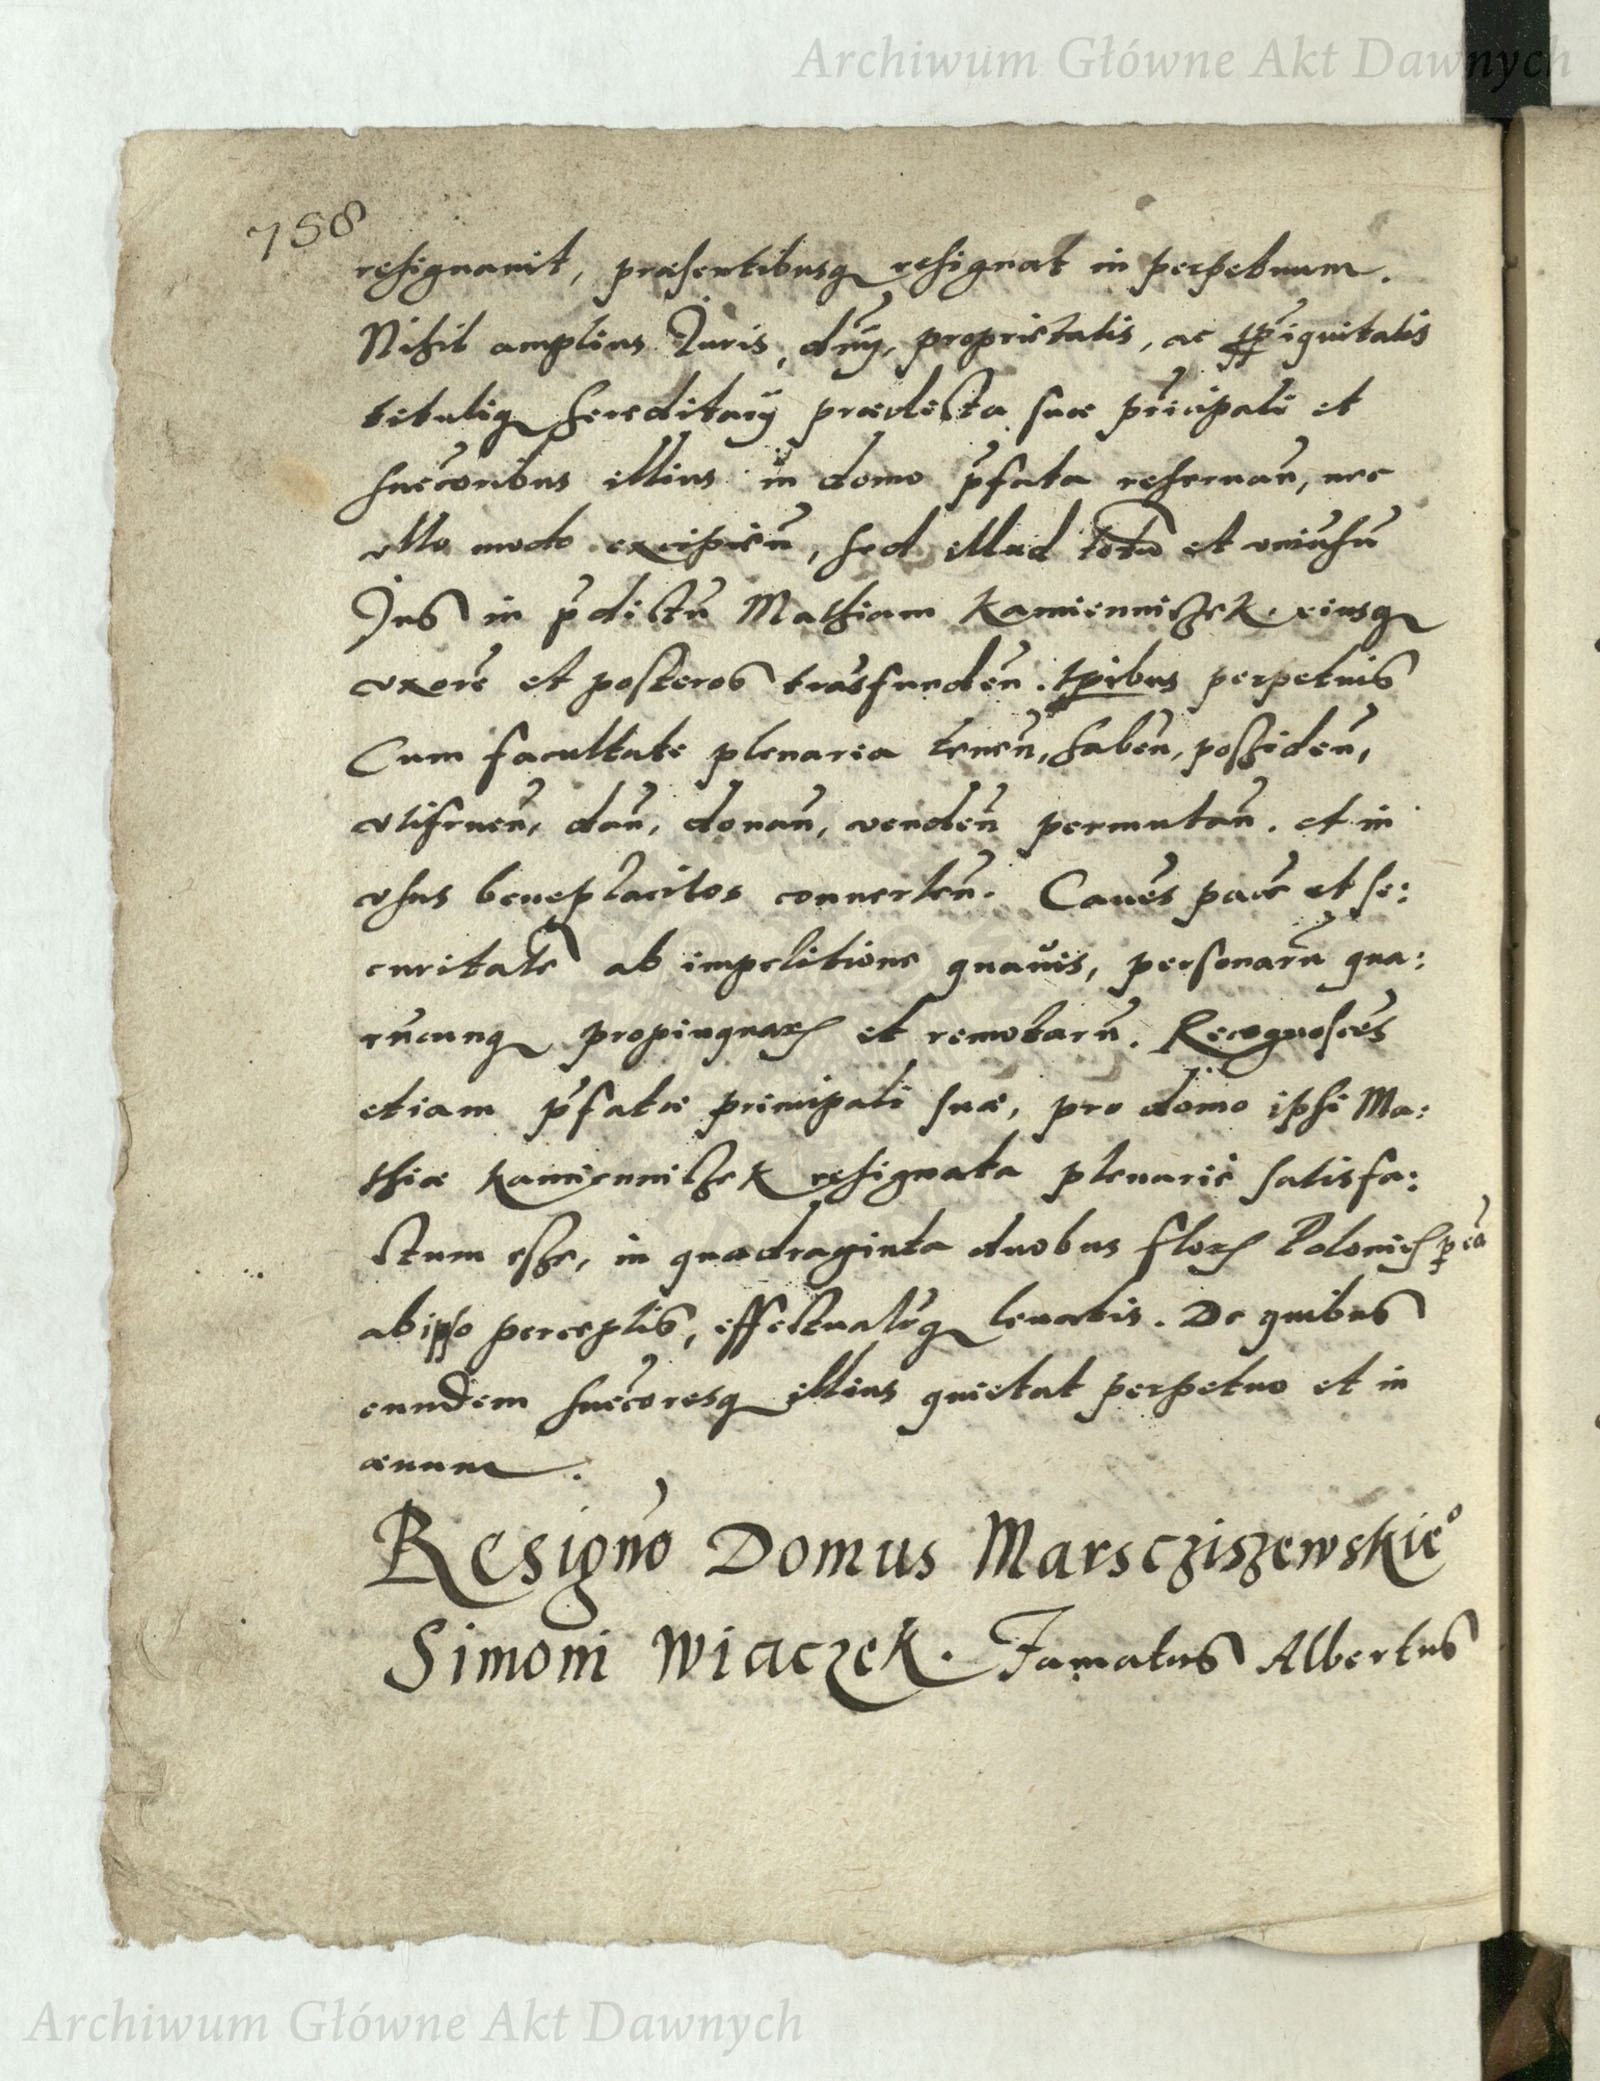 Archiwum Główne Akt Dawnych
758
resignauit, præsentibusq resignat in perpetuum.
Nihil amplius Juris, dnÿ, proprietatis, ac
tituliq hereditarÿ prædicta suæ pricipali et
succoribus illius in domo pfata reseruan, nec
vllo modo excipien, sed illud totu et vniusu
Jus in pdictu Mathiam Kamienniczek eiusq
vxore et posteros trasfunden. tpibus perpetuis
Cum facultate plenaria tenen, haben, possiden,
vtifruen, dan, donan, venden permutan. et in
vsus beneplacitos conuerten. Caues pace et se:
curitate ab impetitione quauis, personaru qua:
rucunq propinquar et remotaru. Recognosces
etiam pfatæ principali suæ, pro domo ipsi Ma:
thiæ Kamienniczek resignata plenarie satisfa:
ctum esse, in quadraginta duobus flor Polonic p ea
ab ipso perceptis, effectualiq leuatis. De quibus
eundem succoresq illius quietat perpetuo et in
æuum.
Resigno Domus Marscziszewskie°
Simoni Wiaczek. Famatus Albertus
Archiwum Główne Akt Dawnych